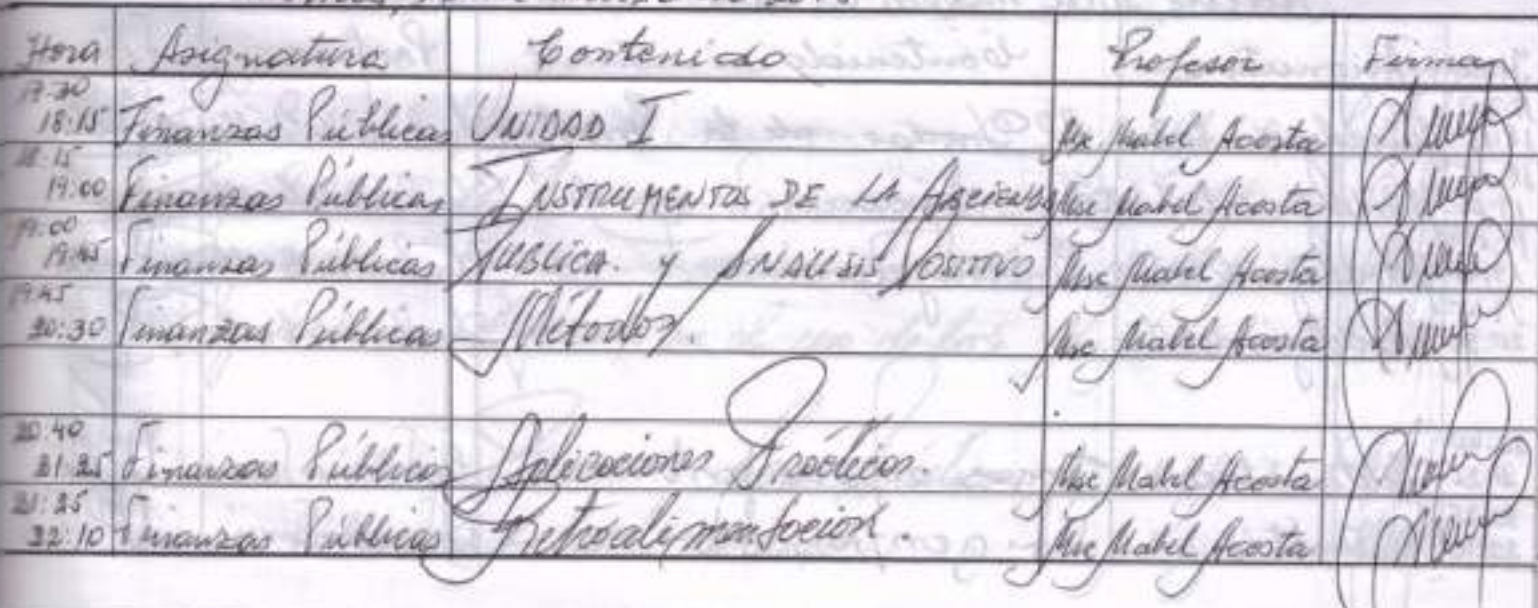 Hora Asignatura Contenido Profesor Firma
17:30
18:15 Finanzas Públicas UNIDAD I Msc Mabel Acosta
18:15
19:00 Finanzas Públicas INSTRUMENTOS DE LA Msc Mabel Acosta
19:00
19:45 Finanzas Públicas PUBLICA. y ANALISIS POSITIVO Msc Mabel Acosta
19:45
20:30 Finanzas Públicas Métodos. Msc Mabel Acosta
20:40
21:25 Finanzas Públicas Aplicaciones Prácticas. Msc Mabel Acosta
21:25
22:10 Finanzas Públicas Retroalimentación. Msc Mabel Acosta